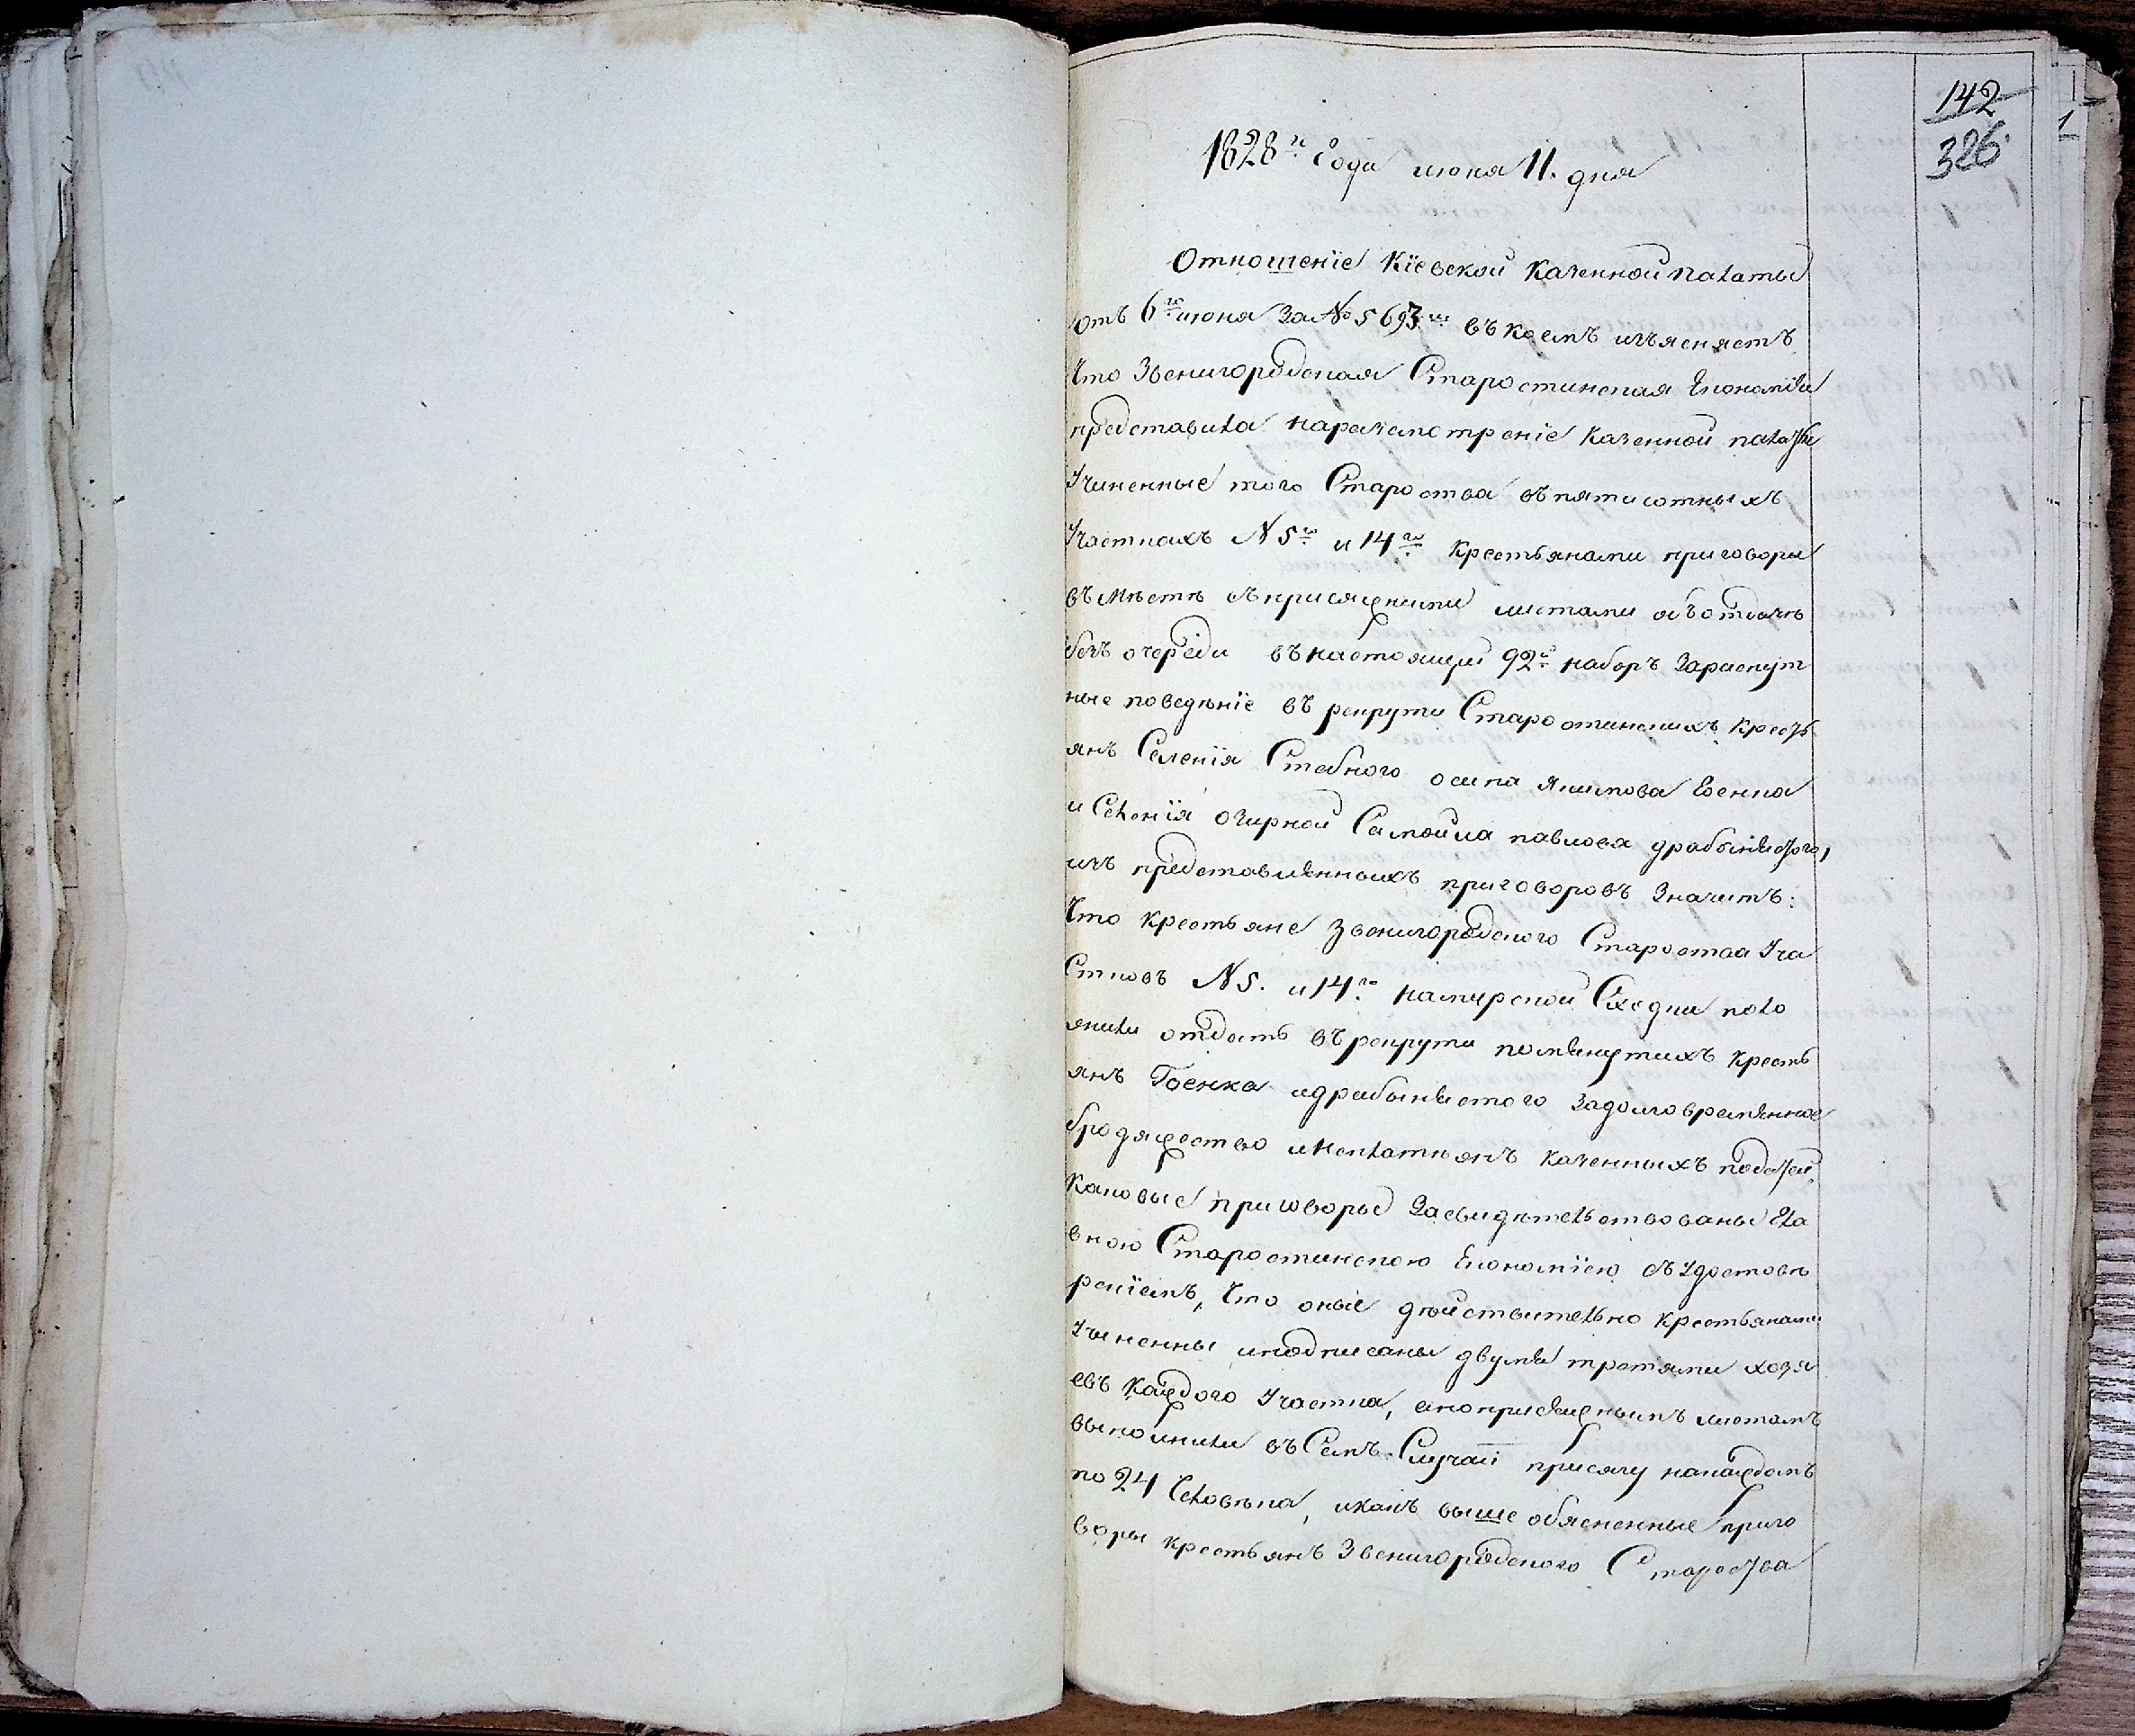 142
326.
1
1828го Года июня 11. дня
Отношеніе Кіевской Казенной палаты
отъ 6го июня За № 5693м въ коемъ изъясняетъ
Что Звенигородская Старостинская Економія
представила наразсмотреніе Казенной палаты
Учиненные того Староства въ пятисотныхъ
Участкахъ N 5го и 14го крестьянами приговоры
въ мѣстѣ съ присяжними листами объ отдачѣ
безъ очереди въ настоящий 92й наборъ За распут
ные поведѣніе въ рекрути Старостинскихъ кресть
янъ Селенія Стебного осипа Якимова
и Селенія озирной Самойла павлова драбиневского,
изъ представленныхъ приговоровъ Значитъ:
Что крестьяне Звенигородского Староства Уча
Стковъ N 5. и 14го на мирской Сходки поло
жили отдать въ рекрути помянутихъ кресть
янъ Гоенка и драбиневского За долговременное
бродяжество и неплатежъ казенныхъ податей,
Каковые приговоры Засвидѣтельствованы Гла
вною Старостинскою Економіею съ Удостовѣ
реніемъ, Что оные дѣйствительно крестьянами
Учиненны и подписаны двумя третями хозя
евъ каждого Участка, а по присяжнымъ листамъ
выполнили въ Семъ Случаи присягу на каждомъ
по 24 Человѣка, и какъ выше обясненные приго
воры крестьянъ Звенигородского Староства